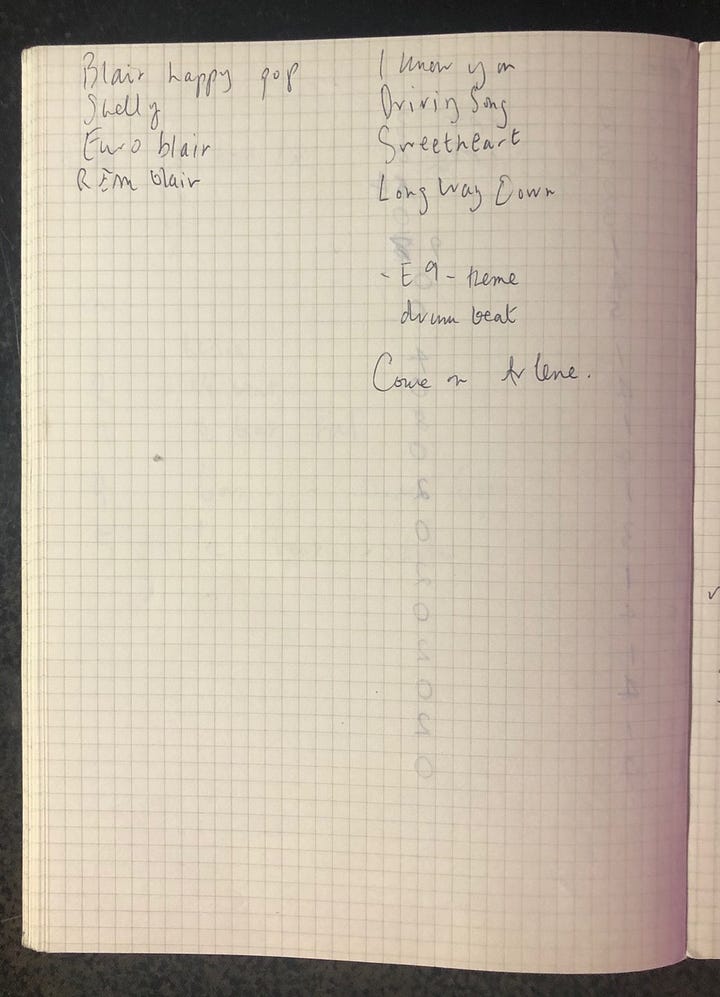 Blair happy pop
Shelly
Euro blair
REM blair
I know you
Driving Song
Sweetheart
Long Way Down
- E 9 - theme
drum beat
Come on Arlene.